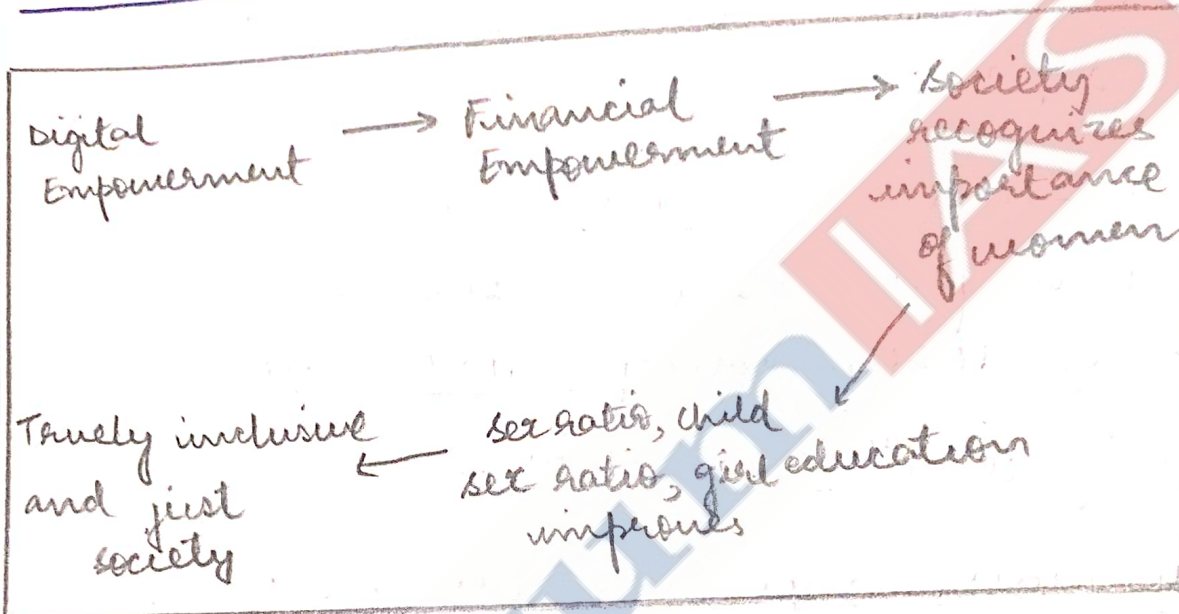 Digital
Empowerment
Financial
Empowerment
Society
recognizes
importance
of women
sex ratio, child
sex ratio, girl education
improves
Truely inclusive
and just
society
um IAS